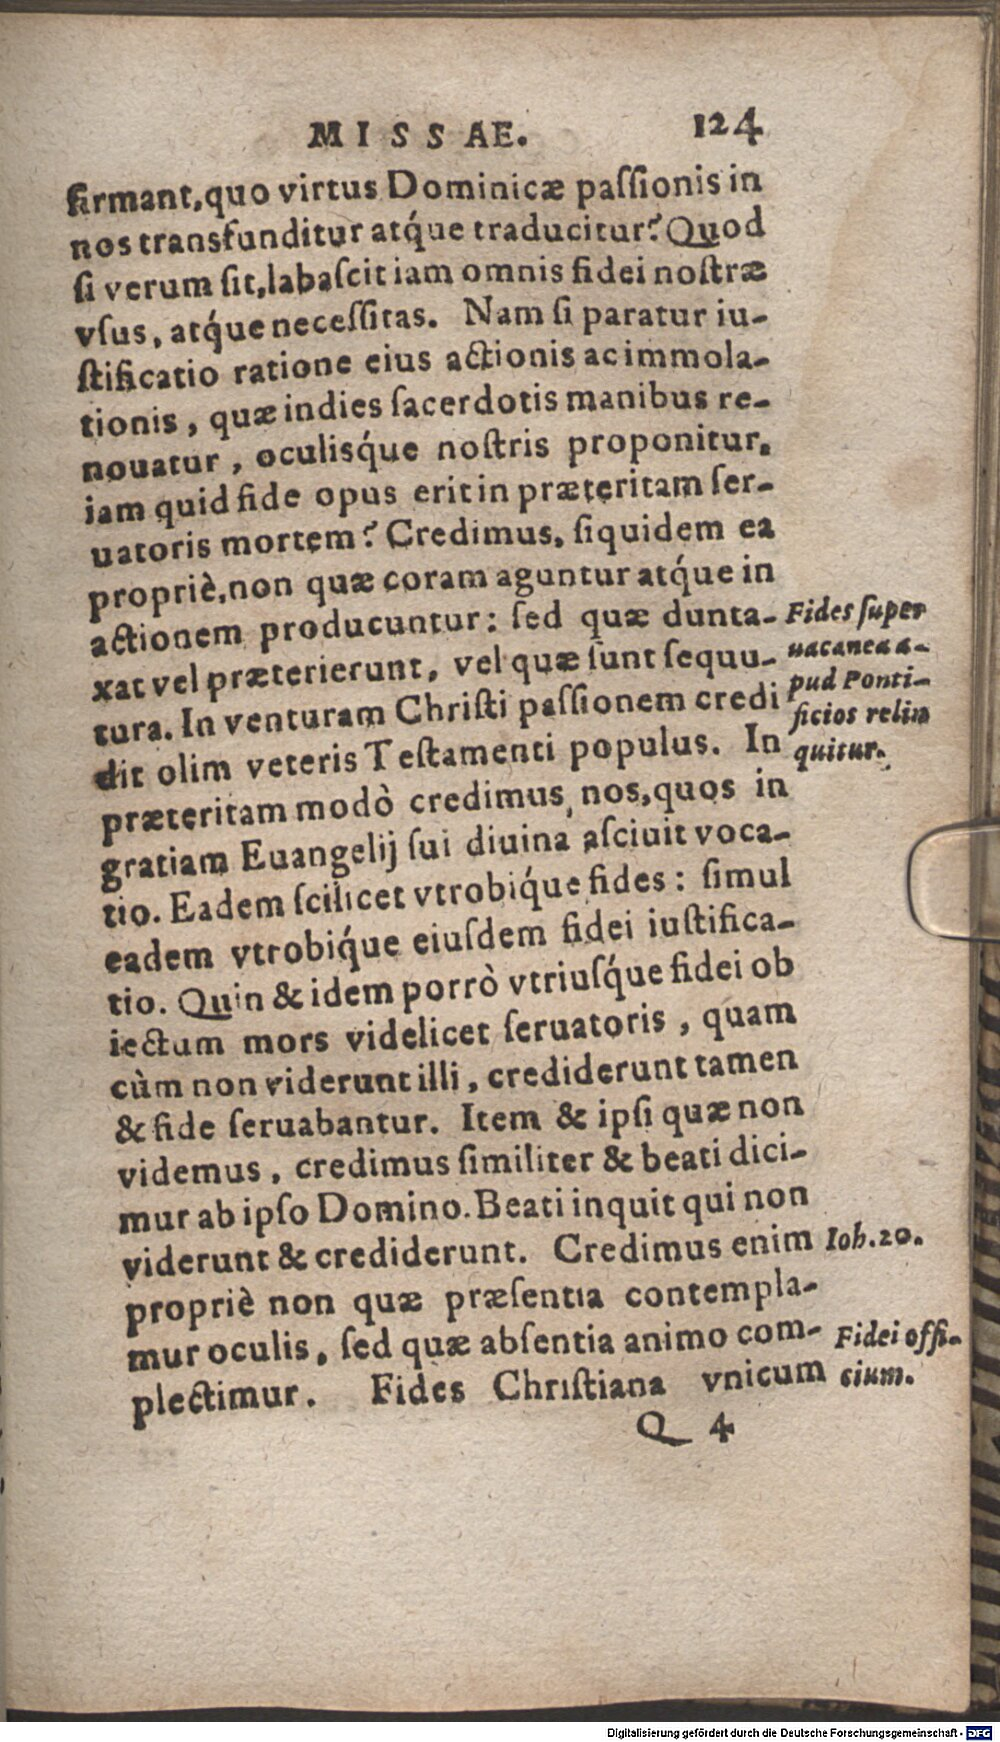 MISSAE. 124
firmant, quo virtus Dominicæ paſſionis in
nos transfunditur atq́ue traducitur? Quod
ſi verum ſit, labaſcit iam omnis fidei noſtræ
vſus, atq́ue neceſſitas. Nam ſi paratur iu-
ſtificatio ratione eius actionis ac immola-
tionis, quæ indies ſacerdotis manibus re-
nouatur, oculisq́ue noſtris proponitur,
iam quid fide opus erit in præteritam ſer-
uatoris mortem? Credimus, ſiquidem ea
propriè, non quæ coram aguntur atq́ue in
actionem producuntur: ſed quæ dunta-
xat vel præterierunt, vel quæ ſunt ſequu-
tura. In venturam Chriſti paſſionem credi
dit olim veteris Teſtamenti populus. In
præteritam modò credimus, nos, quos in
gratiam Euangelij ſui diuina aſciuit voca-
tio. Eadem ſcilicet vtrobiq́ue fides: ſimul
eadem vtrobiq́ue eiuſdem fidei iuſtifica-
tio. Quin & idem porrò vtriuſq́ue fidei ob
iectum mors videlicet ſeruatoris, quam
cùm non viderunt illi, crediderunt tamen
& fide ſeruabantur. Item & ipſi quæ non
videmus, credimus ſimiliter & beati dici-
mur ab ipſo Domino. Beati inquit qui non
viderunt & crediderunt. Credimus enim
propriè non quæ præſentia contempla-
mur oculis, ſed quæ abſentia animo com-
plectimur. Fides Chriſtiana vnicum
Q 4
Fides ſuper
uacanea a-
pud Ponti-
ficios relin
quitur.
Ioh. 20.
Fidei offi-
cium.
Digitalisierung gefördert durch die Deutsche Forschungsgemeinschaft - DFG